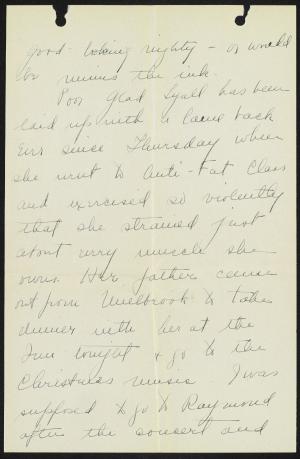 good-looking nighty - or would
be minus the ink.
Poor Glad Lyall has been
laid up with a lame back
ever since Thursday when
she went to Anti-Fat Class
and exercised so violently
that she strained just
about every muscle she
owns. Her father came
out from Milbrook to take
dinner with her at the
Inn tonight & go to the
Christmas music. I was
supposed to go to Raymond
after the concert and